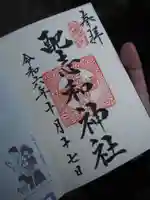 奉拝
配志和神社
令和六年十月十七日